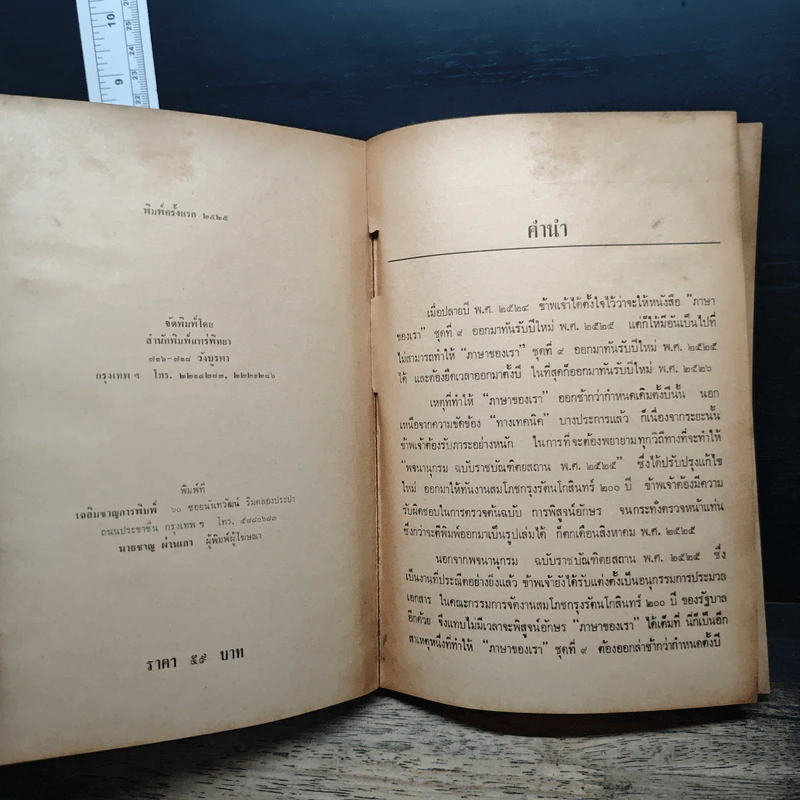 พิมพ์ครั้งแรก ๒๕๒๕
จัดพิมพ์โดย
สำนักพิมพ์แพร่พิทยา
๗๑๖-๗๑๘ วังบูรพา
กรุงเทพ ฯ โทร. ๒๒๑๔๒๘๓, ๒๒๒๑๒๘๖
พิมพ์ที่
เฉลิมชาญการพิมพ์ ๖๐ ซอยนันทวัฒน์ ริมคลองประปา
ถนนประชาชื่น กรุงเทพ ฯ โทร. ๕๘๘๖๖๘๓
นายชาญ ผ่านเภา ผู้พิมพ์ผู้โฆษณา
ราคา ๕๙ บาท
คำนำ
เมื่อปลายปี พ.ศ. ๒๕๒๔ ข้าพเจ้าได้ตั้งใจไว้ว่าจะให้หนังสือ "ภาษา
ของเรา" ชุดที่ ๙ ออกมาทันรับปีใหม่ พ.ศ. ๒๕๒๕ แต่ก็ให้มีอันเป็นไปที่
ไม่สามารถทำให้ "ภาษาของเรา" ชุดที่ ๙ ออกมาทันรับปีใหม่ พ.ศ. ๒๕๒๕
ได้ และต้องยืดเวลาออกมาตั้งปี ในที่สุดก็ออกมาทันรับปีใหม่ พ.ศ. ๒๕๒๖
เหตุที่ทำให้ "ภาษาของเรา" ออกช้ากว่ากำหนดเดิมตั้งปีนั้น นอก
เหนือจากความขัดข้อง "ทางเทคนิค" บางประการแล้ว ก็เนื่องจากระยะนั้น
ข้าพเจ้าต้องรับภาระอย่างหนัก ในการที่จะต้องพยายามทุกวิถีทางที่จะทำให้
"พจนานุกรม ฉบับราชบัณฑิตยสถาน พ.ศ. ๒๕๒๕" ซึ่งได้ปรับปรุงแก้ไข
ใหม่ ออกมาให้ทันงานสมโภชกรุงรัตนโกสินทร์ ๒๐๐ ปี ข้าพเจ้าต้องมีความ
รับผิดชอบในการตรวจต้นฉบับ การพิสูจน์อักษร จนกระทั่งตรวจหน้าแท่น
ซึ่งกว่าจะตีพิมพ์ออกมาเป็นรูปเล่มได้ ก็ตกเดือนสิงหาคม พ.ศ. ๒๕๒๕
นอกจากพจนานุกรม ฉบับราชบัณฑิตยสถาน พ.ศ. ๒๕๒๕ ซึ่ง
เป็นงานที่ประณีตอย่างยิ่งแล้ว ข้าพเจ้ายังได้รับแต่งตั้งเป็นอนุกรรมการประมวล
เอกสาร ในคณะกรรมการจัดงานสมโภชกรุงรัตนโกสินทร์ ๒๐๐ ปี ของรัฐบาล
อีกด้วย จึงแทบไม่มีเวลาจะพิสูจน์อักษร "ภาษาของเรา" ได้เต็มที่ นี่ก็เป็นอีก
สาเหตุหนึ่งที่ทำให้ "ภาษาของเรา" ชุดที่ ๙ ต้องออกล่าช้ากว่ากำหนดตั้งปี
10
9
25
24
23
22